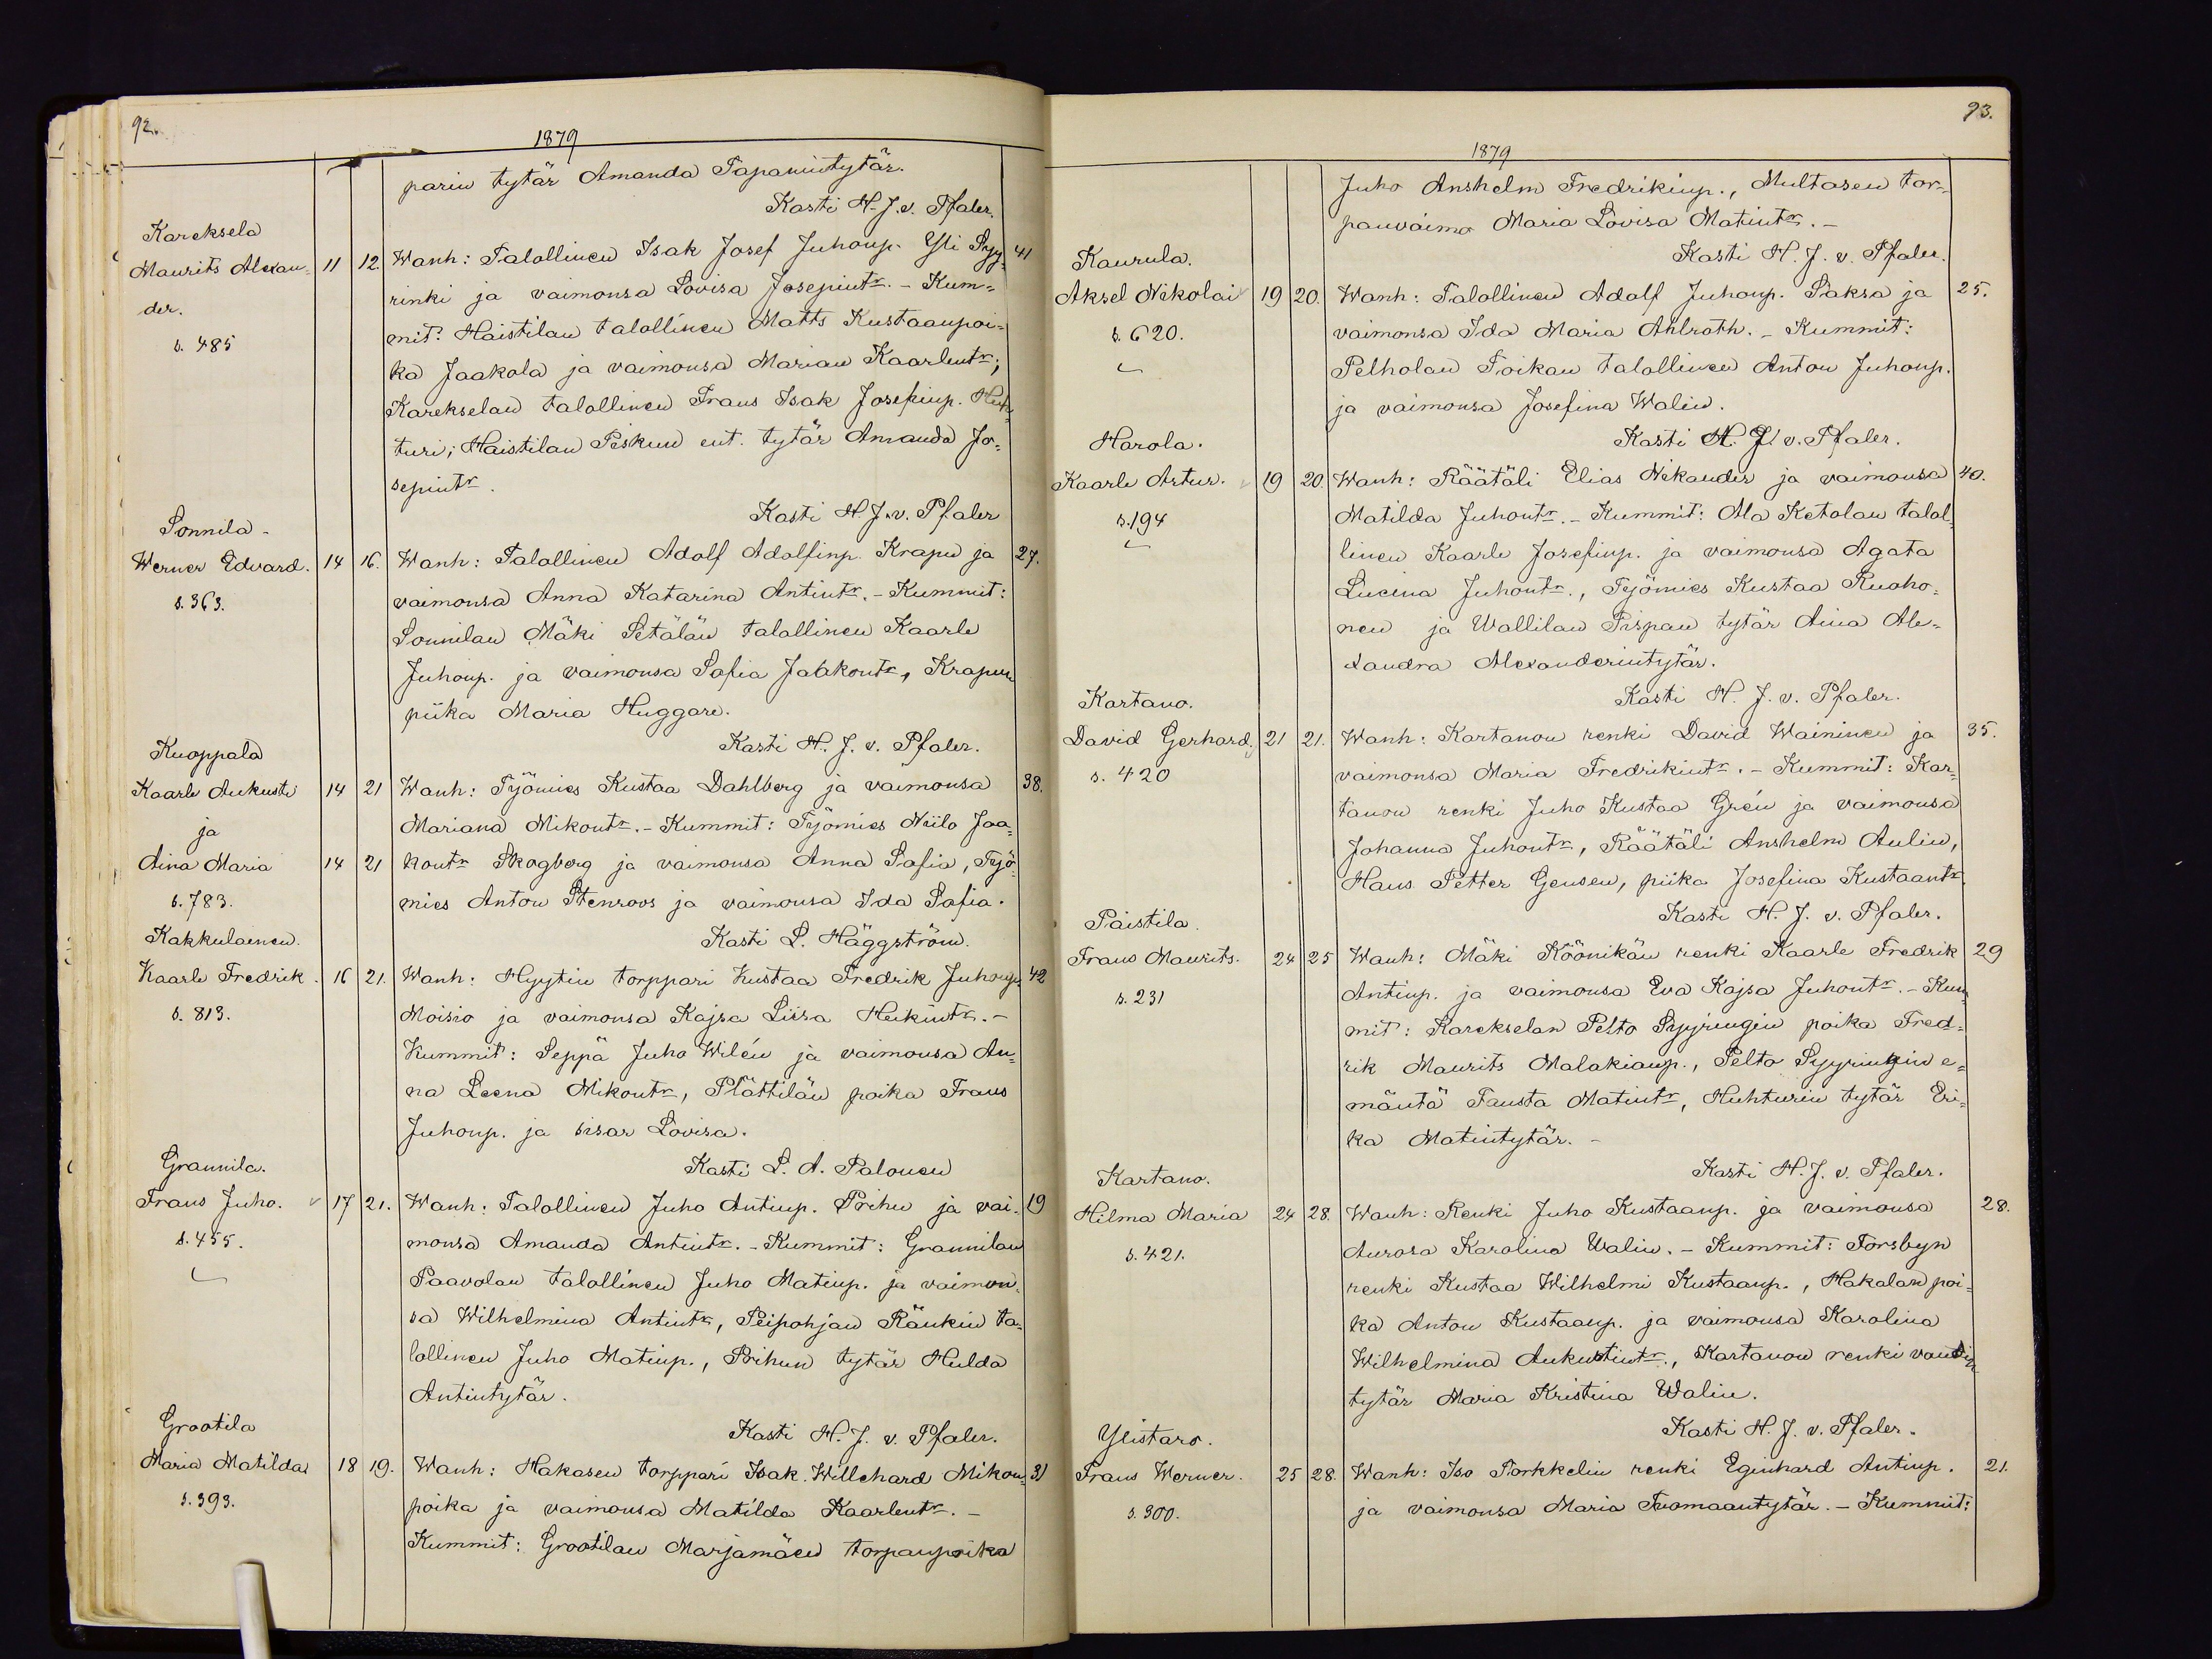 92.
1879
parin tytär Amanda Tapanintytär.
Kasti H. J. v. Pfaler.
Kareksela
Maurits Alexan= 11 12. Wanh: Talollinen Isak Josef Juhonp. Yli Syy= 41
der. rinki ja vaimonsa Lovisa Josepintr. - Kum=
s. 485 mit: Haistilan talollinen Matts Kustaanpoi=
ka Jaakola ja vaimonsa Marian Kaarlentr;
Karekselan talollinen Frans Isak Josefinp. Huh=
turi; Haistilan Peskun ent. tytär Amanda Jo=
sepintr.
Kasti H. J. v. Pfaler
Sonnila -
Werner Edvard. 14 16. Wanh: Talollinen Adolf Adolfinp. Krapu ja 27.
s. 363. vaimonsa Anna Katarina Antintr. - Kummit:
Sonnilan Mäki Setälän talollinen Kaarle
Juhonp. ja vaimonsa Sofia Jaakontr, Krapun
piika Maria Huggare.
Kasti H. J. v. Pfaler.
Kuoppala
Kaarle Aukusti 14 21 Wanh: Työmies Kustaa Dahlberg ja vaimonsa 38.
ja Mariana Mikontr. - Kummit: Työmies Niilo Jaa=
Aina Maria 14 21 kontr Skogberg ja vaimonsa Anna Sofia, Työ=
s. 783. mies Anton Stenroos ja vaimonsa Ida Sofia.
Kasti L. Häggström.
Kakkulainen.
Kaarle Fredrik. 16 21. Wanh: Hyytin torppari Kustaa Fredrik Juhonp. 42
s. 813. Moisio ja vaimonsa Kajsa Liisa Heikintr. -
Kummit: Seppä Juho Wilén ja vaimonsa An=
na Leena Mikontr, Plättilän poika Frans
Juhonp. ja sisar Lovisa.
Kasti L. A. Palonen
Grannila.
Frans Juho. 17 21. Wanh: Talollinen Juho Antinp. Prihu ja vai= 19
s. 455. monsa Amanda Antintr. - Kummit: Grannilan
Paavolan talollinen Juho Matinp. ja vaimon=
sa Wilhelmina Antintr, Peipohjan Ränkin ta=
lollinen Juho Matinp., Prihun tytär Hulda
Antintytär.
Kasti H. J. v. Pfaler.
Grootila
Maria Matilda 18 19. Wanh: Hakasen torppari Isak Willehard Mikon= 31
s. 393. poika ja vaimonsa Matilda Kaarlentr. -
Kummit: Grootilan Marjamäen torpanpoika
93.
1879
Juho Anshelm Fredrikinp., Multasen tor=
panvaimo Maria Lovisa Matintr. -
Kasti H. J. v. Pfaler.
Kaurula.
Aksel Nikolai 19 20. Wanh: Talollinen Adolf Juhonp. Saksa ja 25.
s. 620. vaimonsa Ida Maria Ahlroth. - Kummit:
Pelholan Toikan talollinen Anton Juhonp.
ja vaimonsa Josefina Walin.
Kasti H. J. v. Pfaler.
Harola.
Kaarle Artur. 19 20 Wanh: Räätäli Elias Nikander ja vaimonsa 40.
s. 194 Matilda Juhontr. - Kummit: Ala Ketolan talol=
linen Kaarle Josefinp. ja vaimonsa Agata
Lucina Juhontr., Työmies Kustaa Ruoho=
nen ja Wallilan Pispan tytär Aina Ale=
xandra Alexanderintytär.
Kasti H. J. v. Pfaler.
Kartano.
David Gerhard. 21 21. Wanh: Kartanon renki David Waininen ja 35.
s. 420 vaimonsa Maria Fredrikintr. - Kummit: Kar=
tanon renki Juho Kustaa Grén ja vaimonsa
Johanna Juhontr, Räätäli Anshelm Aulin,
Hans Petter Gensen, piika Josefina Kustaantr.
Kasti H. J. v. Pfaler.
Paistila.
Frans Maurits. 24 25 Wanh: Mäki Röönikän renki Kaarle Fredrik 29
s. 231 Antinp. ja vaimonsa Eva Kajsa Juhontr. - Kum=
mit: Karekselan Pelto Syyringin poika Fred=
rik Maurits Malakianp., Pelto Syyringin e=
mäntä Fausta Matintr, Huhturin tytär Eri=
ka Matintytär. -
Kasti H. J. v. Pfaler.
Kartano.
Hilma Maria 24 28. Wanh: Renki Juho Kustaanp. ja vaimonsa 28.
s. 421. Aurora Karolina Walin. - Kummit: Forsbyn
renki Kustaa Wilhelmi Kustaanp., Hakalan poi=
ka Anton Kustaanp. ja vaimonsa Karolina
Wilhelmina Aukustintr., Kartanon renki voudin
tytär Maria Kristina Walin.
Kasti H. J. v. Pfaler.
Ylistaro.
Frans Werner. 25 28. Wanh: Iso Torkkelin renki Eginhard Antinp. 21.
s. 300. ja vaimonsa Maria Tuomaantytär. - Kummit: